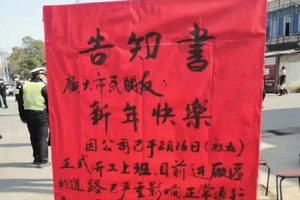 告知書
廣大市民朋友：
新年快樂
因公司已于2月16日(初五)
正式开工上班,目前进廠區
的道路已严重影响正常通行